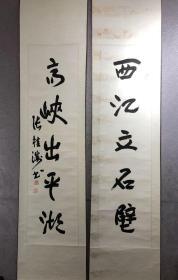 西江立石壁
高峡出平湖
张桂铭书